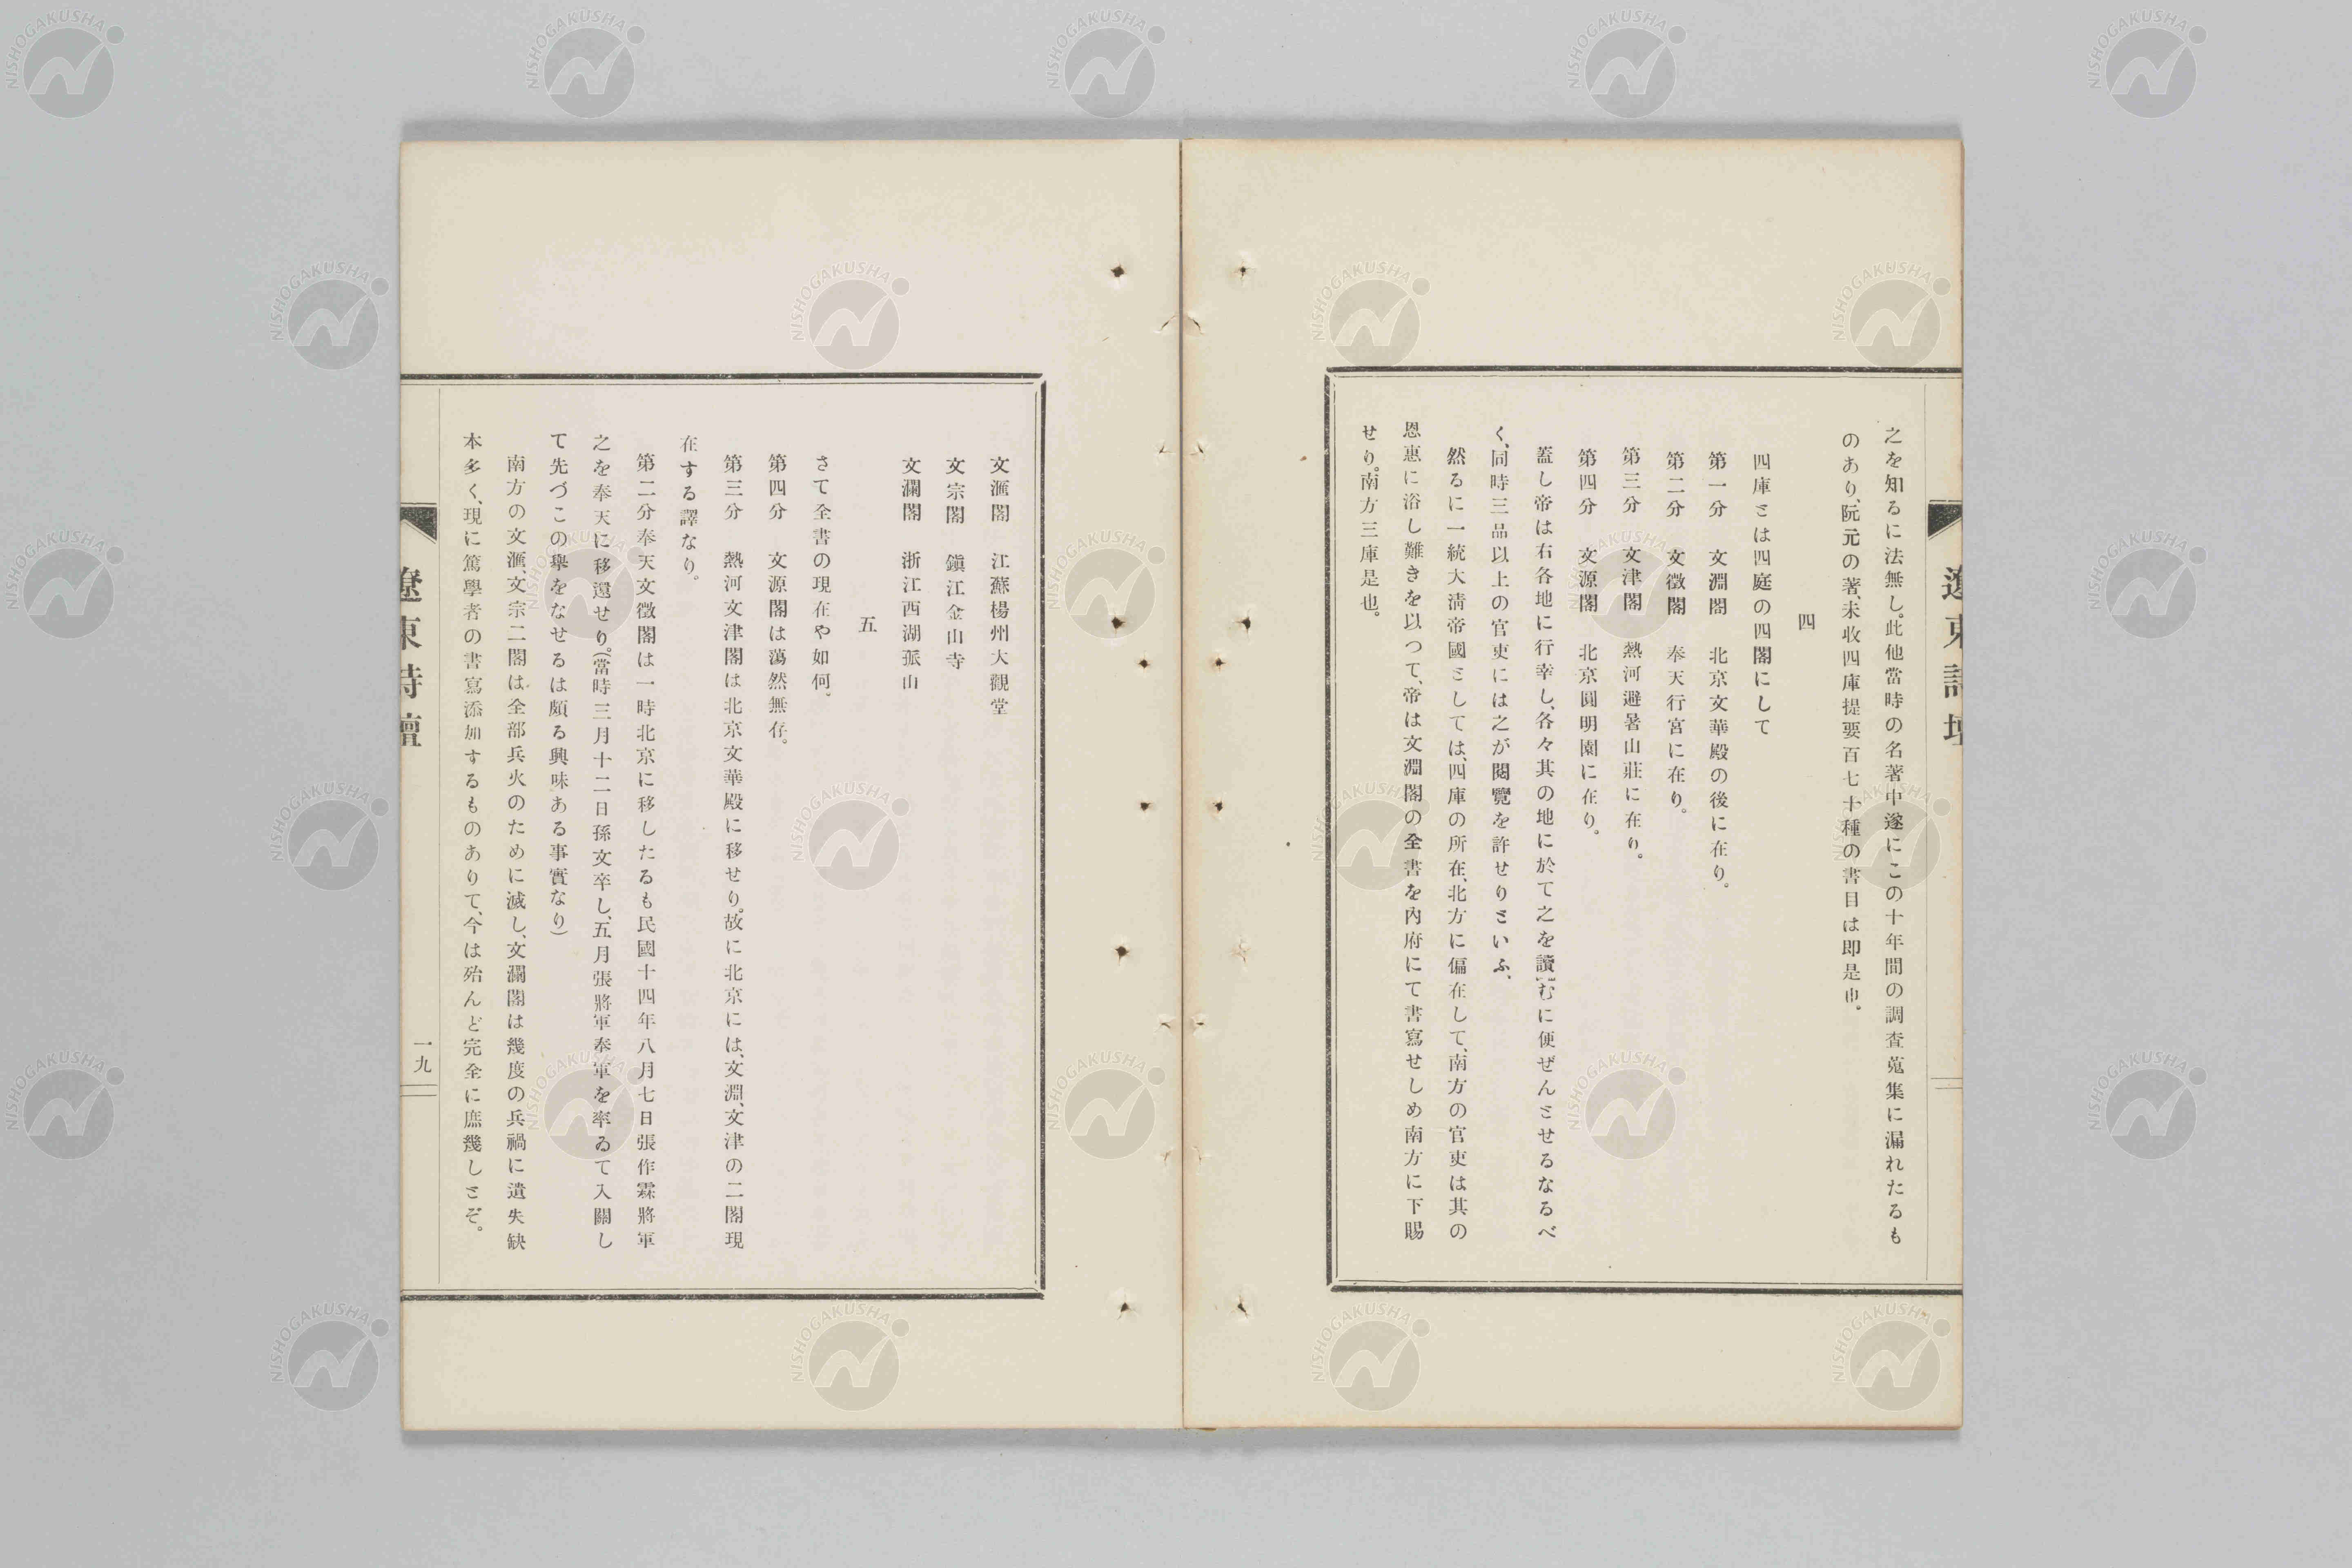 之を知るに法無し。此他當時の名著中遂にこの十年間の調査蒐集に漏れたるも
のあり、阮元の著、未收四庫提要百七十種の書目は即是也。
四
四庫とは四庭の四閣にして
第一分 文淵閣 北京文華殿の後に在り。
第二分 文徴閣 奉天行宮に在り。
第三分 文津閣 熱河避暑山莊に在り。
第四分 文源閣 北京圓明園に在り。
蓋し帝は右各地に行幸し、各々其の地に於て之を讀むに便ぜんとせるなるべ
く、同時三品以上の官吏には之が閲覽を許せりといふ、
然るに一統大淸帝國としては、四庫の所在、北方に偏在して、南方の官吏は其の
恩惠に浴し難きを以つて、帝は文淵閣の全書を內府にて書寫せしめ南方に下賜
せり。南方三庫是也。
遼東詩壇
文滙閣 江蘇楊州大觀堂
文宗閣 鎭江金山寺
文瀾閣 浙江西湖孤山
五
さて全書の現在や如何。
第四分 文源閣は蕩然無存。
第三分 熱河文津閣は北京文華殿に移せり。故に北京には、文淵、文津の二閣現
在する譯なり。
第二分奉天文徴閣は一時北京に移したるも民國十四年八月七日張作霖將軍
之を奉天に移還せり。(當時三月十二日孫文卒し、五月張將軍奉軍を率ゐて入關し
て先づこの擧をなせるは頗る興味ある事實なり)
南方の文滙、文宗二閣は全部兵火のために滅し、文瀾閣は幾度の兵禍に遺失缺
本多く、現に篤學者の書寫添加するものありて、今は殆んど完全に庶幾しとぞ。
遼東詩壇
一九
NISHOGAKUSHA